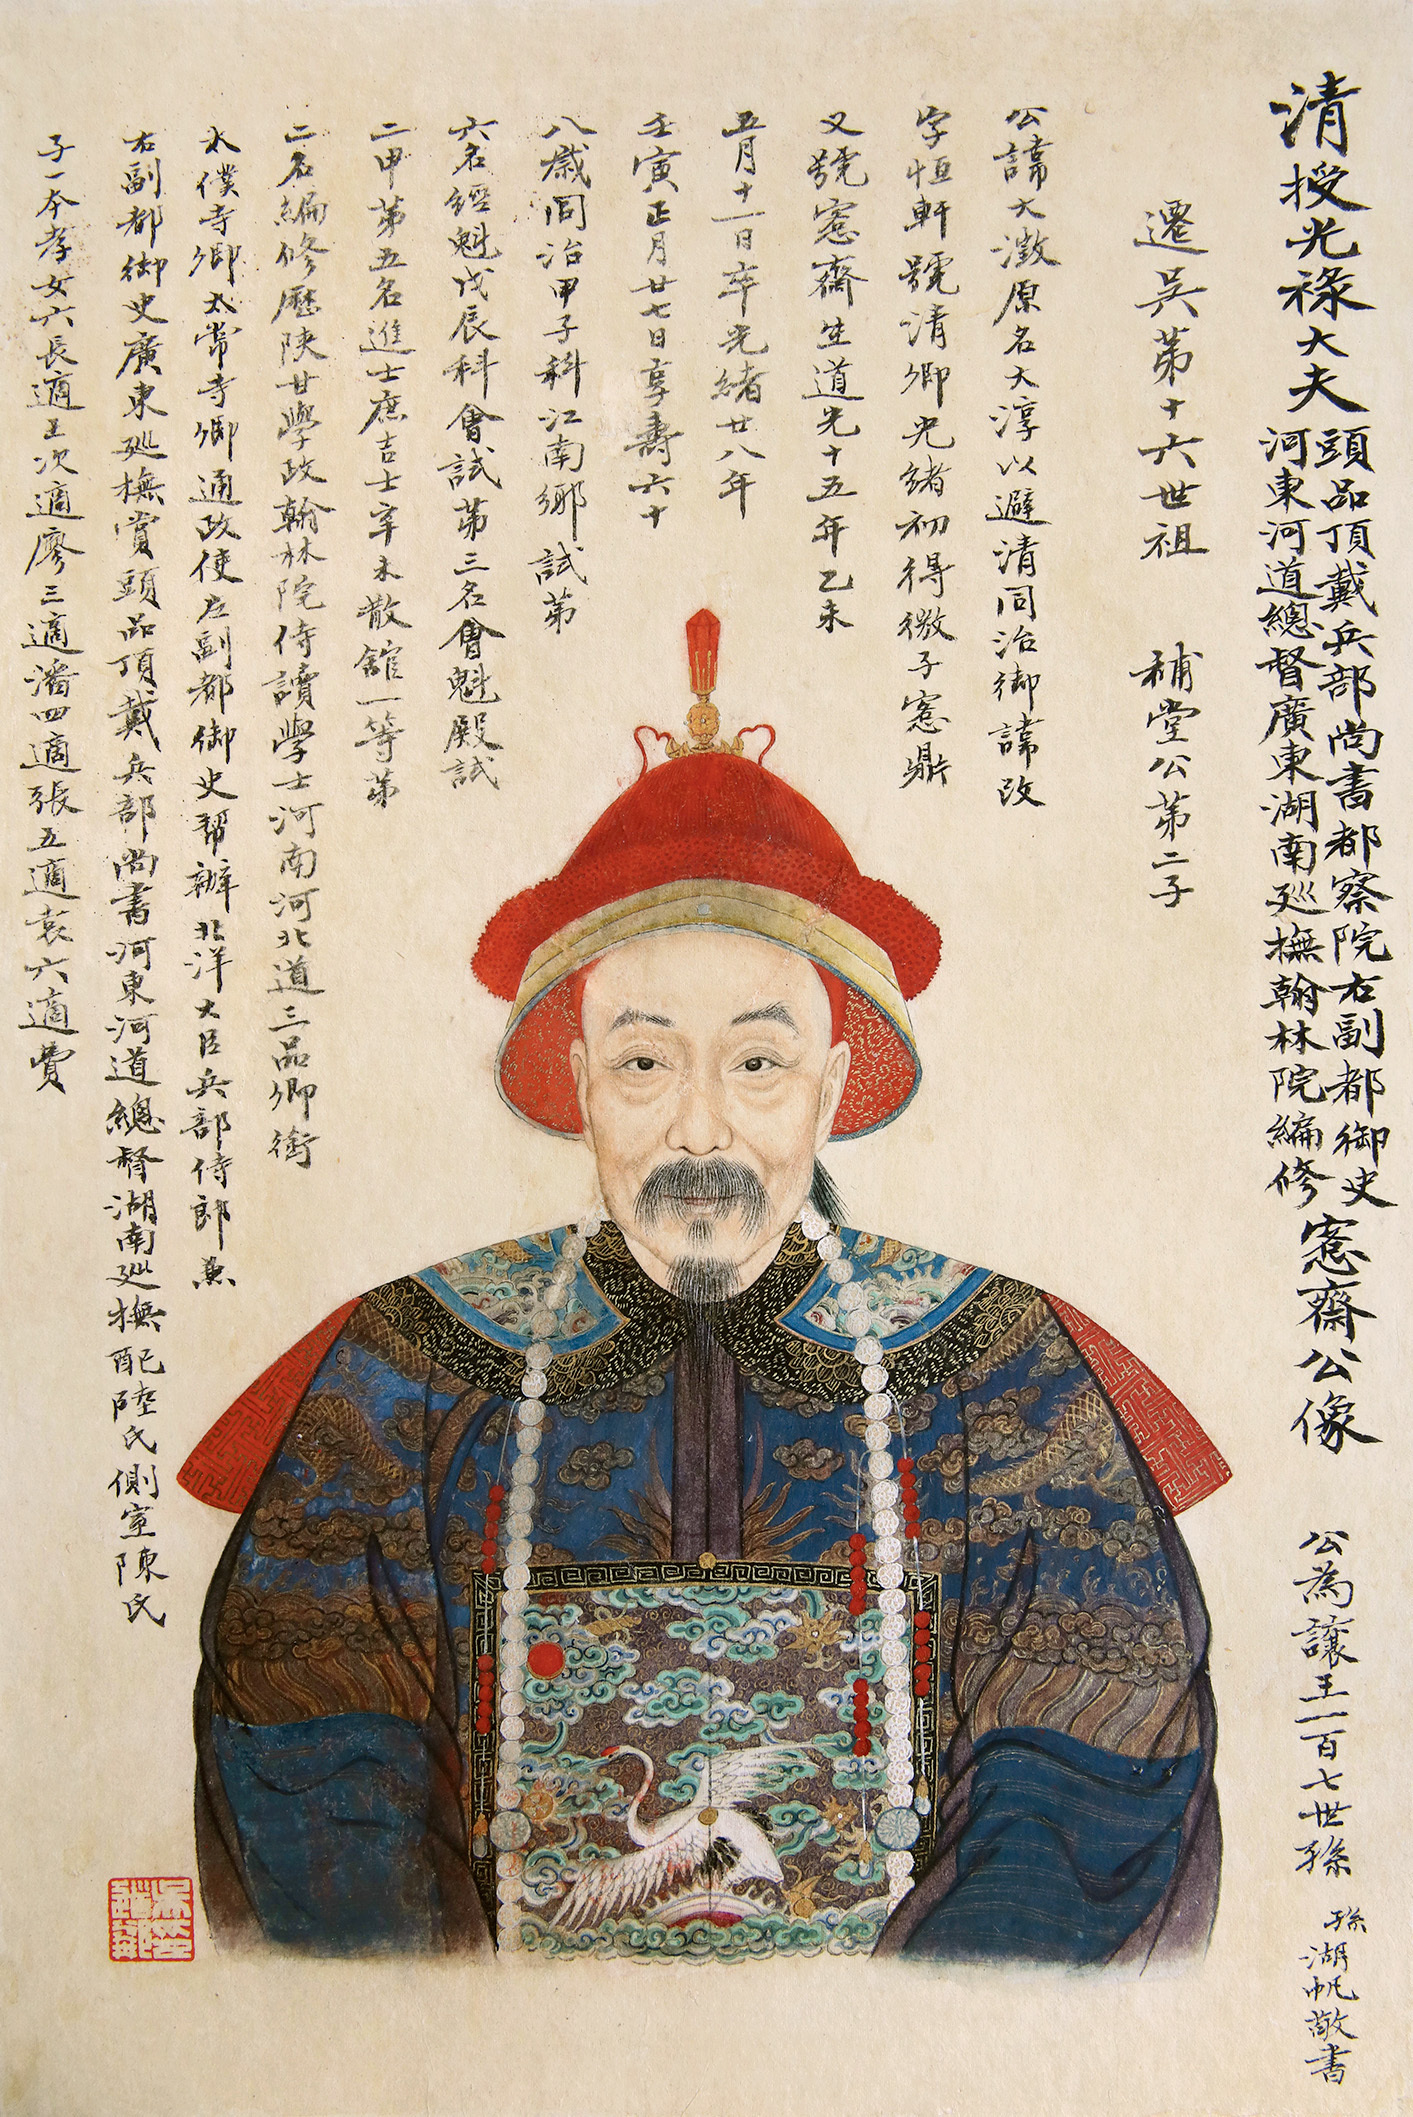 清授光祿大夫頭品頂戴兵部尚書都察院右副都御史河東河道總督廣東湖南廵撫翰林院編修愙齋公像 公為讓王一百七世孫 孫湖帆敬書
遷吳第十六世祖 補堂公第二子
公諱大澂原名大淳以避清同治御諱改
字恒軒號清卿光緒初得微子愙鼎
又號愙齋生道光十五年乙未
五月十一日卒光緒廿八年
壬寅正月廿七日享壽六十
八歲同治甲子科江南鄉試第
六名經魁戊辰科會試第三名會魁殿試
二甲第五名進士庶吉士辛未散館一等第
二名編修歷陝甘學政翰林院侍讀學士河南河北道三品卿銜
太僕寺卿太常寺卿通政使左副都御史幫辦北洋大臣兵部侍郎兼
右副都御史廣東廵撫賞頭品頂戴兵部尚書河東河道總督湖南廵撫配陸氏側室陳氏
子一本孝女六長適王次適廖三適潘四適張五適袁六適費